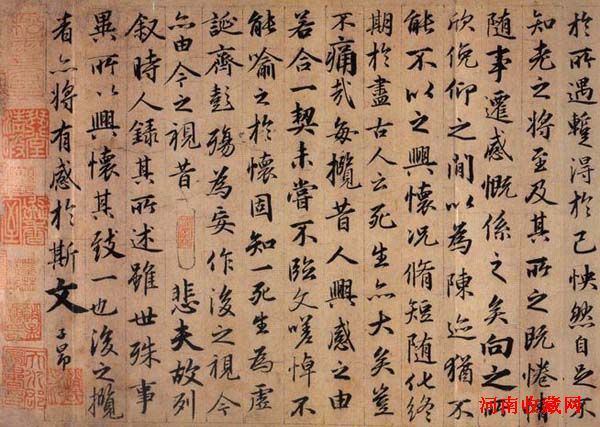 於所遇蹔得於己怏然自足不
知老之將至及其所之既惓情
隨事遷感慨係之矣向之所
欣俛仰之間以為陳迹猶不
能不以之興懷況脩短隨化終
期於盡古人云死生亦大矣豈
不痛哉每攬昔人興感之由
若合一契未嘗不臨文嗟悼不
能喻之於懷固知一死生為虛
誕齊彭殤為妄作後之視今
亦由今之視昔 悲夫故列
叙時人錄其所述雖世殊事
異所以興懷其致一也後之攬
者亦將有感於斯文 子昂
河南收藏网